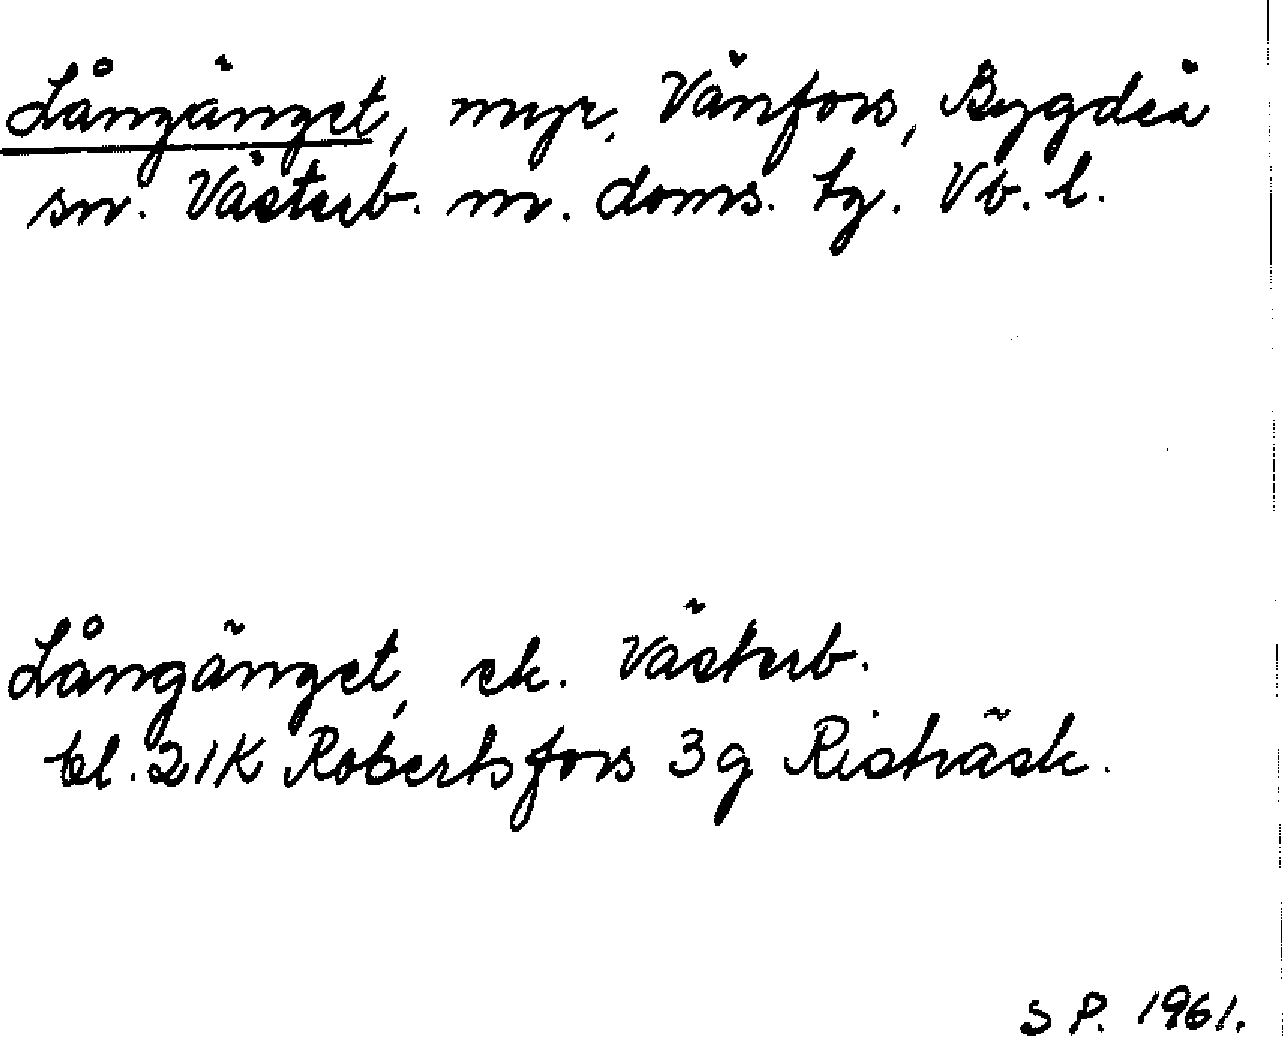 Långänget, myr, Vänfors, Bygdeå
sn. Västerb. m. doms. tg. Vb. l.
Långänget, ek. Västerb.
bl. 21K Robertsfors 3g Risträsk.
S P. 1961.